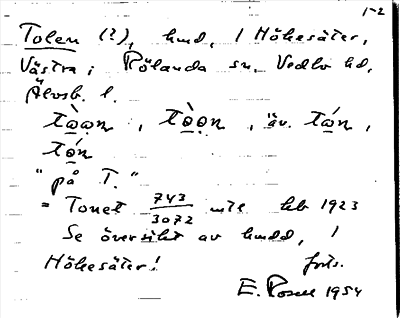 1-2
Tolen (?), hmd, 1 Hökesäter,
Västra i Rölanda sn, Vedbo hd,
Älvsb. l.
tòǫn, tòǫn, äv. tǫ́n,
tǫ́n
"på T."
= Tonet 743/3072 mtl krb 1923
Se översikt av hmdd, 1
Hökesäter! forts.
E. Rosell 1954